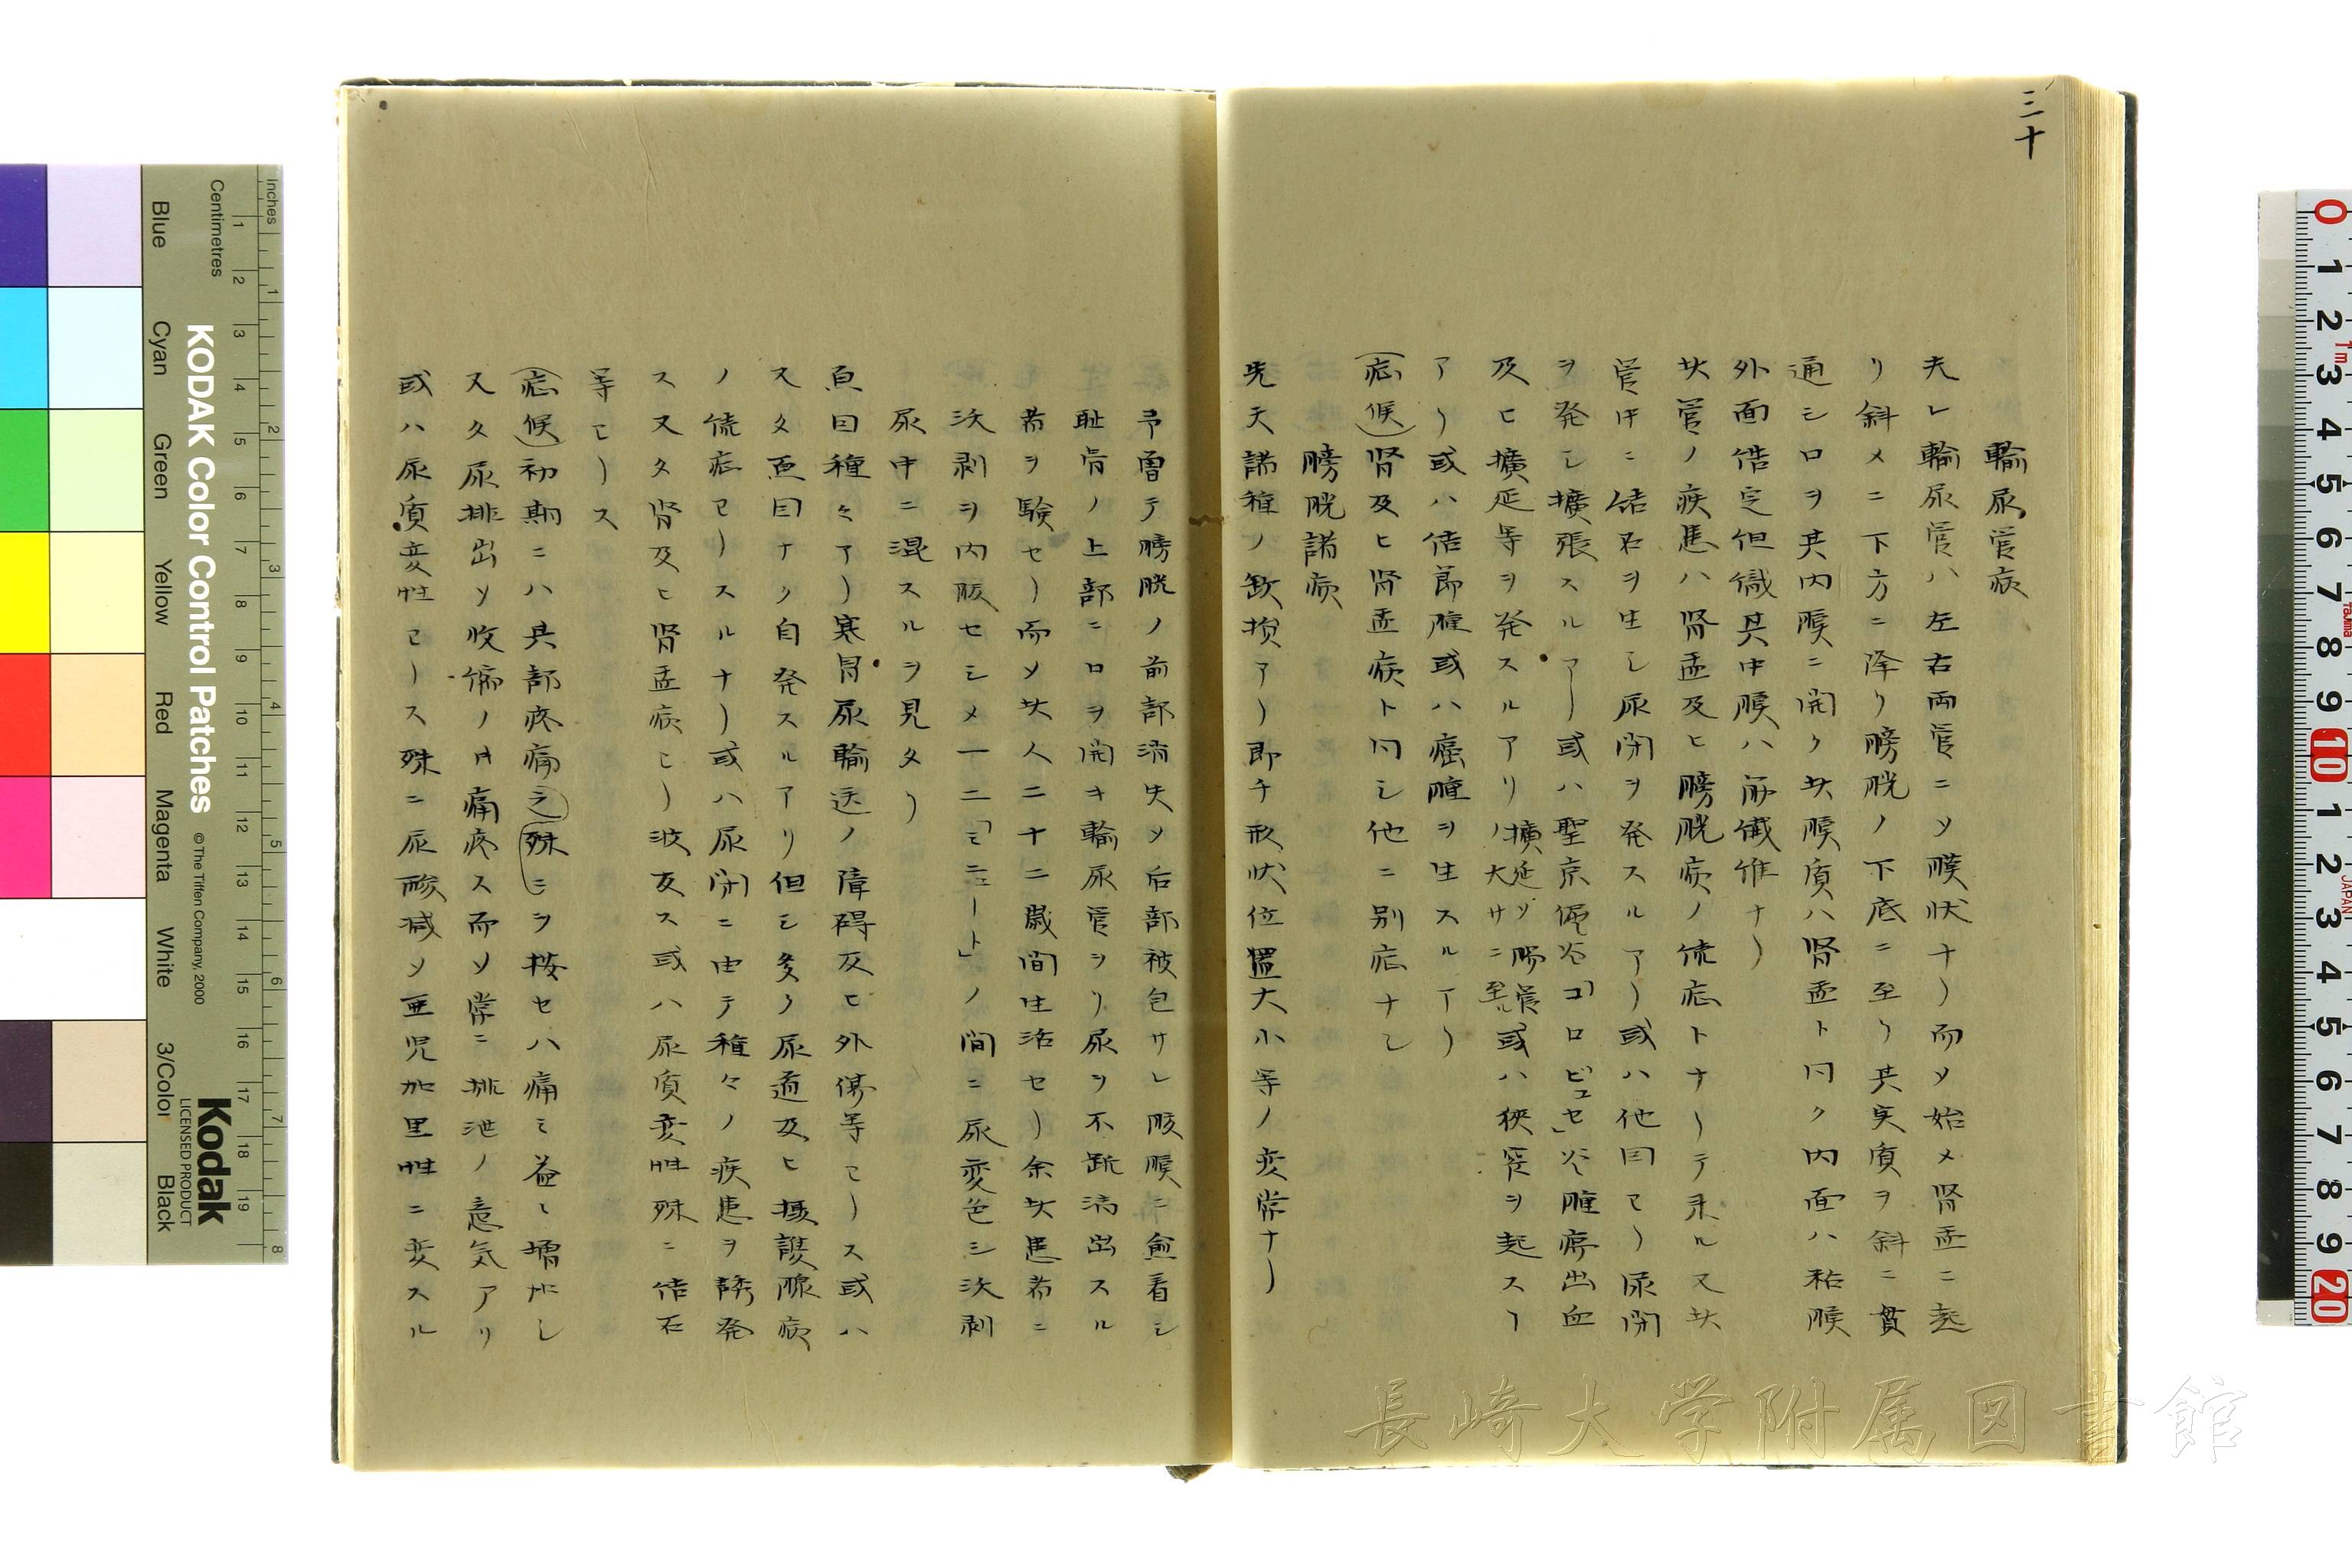 三十
輸尿管病
夫レ輸尿管ハ左右両管ニソ膜状ナリ而ソ始メ腎盂ニ起
リ斜メニ下方ニ降リ膀胱ノ下底ニ至リ其実質ヲ斜ニ貫
通シロヲ其内膜ニ開ク此膜質ハ腎盂ト同ク内面ハ粘膜
外面ハ但シ其中膜ハ繊維ナリ
此管ノ疾患ハ腎盂及ヒ膀胱病ノ症トナリテ来ル又此
管中ニ結石ヲ生シ尿閉ヲ発スルアリ或ハ他因ヨリ尿閉
ヲ発シ擴張スルアリ或ハ聖京偓谷「コロビュセ」谷腫瘍出血
及ヒ擴延等ヲ発スルアリ擴延ソ腸管ノ大サニ至ル或ハ狹窄ヲ起スー
アリ或ハ結節腫或ハ癌腫ヲ生スルアリ
(症候)腎及ヒ腎盂病ト同シ他ニ別症ナシ
膀胱諸病
先天諸種ノ缺損アリ即チ形状位置大小等ノ変常ナリ
予曽テ膀胱ノ前部消失ソ后部被包サレ腹膜ニ愈着シ
耻骨ノ上部ニロヲ開キ輸尿管ヨリ尿ヲ不断漏出スル
者ヲ験セリ而ソ此人二十二歳間生活セリ余此患者ニ
沃剥ヲ内服セシメ一二「ミニュート」ノ間ニ尿変色シ沃剥
尿中ニ混スルヲ見タリ
原因種々アリ寒冒尿輸送ノ障碍及ヒ外傷等ヨリス或ハ
又タ原因ナク自発スルアリ但シ多ク尿道及ヒ摂護腺病
ノ症ヨリスルナリ或ハ尿閉ニ由テ種々ノ疾患ヲ誘発
ス又タ腎及ヒ腎盂病ヨリ波及ス或ハ尿質変性殊ニ結石
等ヨリス
(症候)初期ニハ其部疼痛之殊ニヲ按セハ痛ミ益々増加シ
又タ尿排出ソ收縮ノ時痛疼ス而ソ常ニ排泄ノ意気アリ
或ハ尿質変性ヨリス殊ニ尿酸減ソ亜児加里性ニ変スル
Inches
Centimetres
Blue
Cyan
Green
Yellow
Red
Magenta
White
3/Color
Black
KODAK Color Control Patches
© The Tiffen Company, 2000
Kodak
LICENSED PRODUCT
長崎大学附属図書館
JAPAN